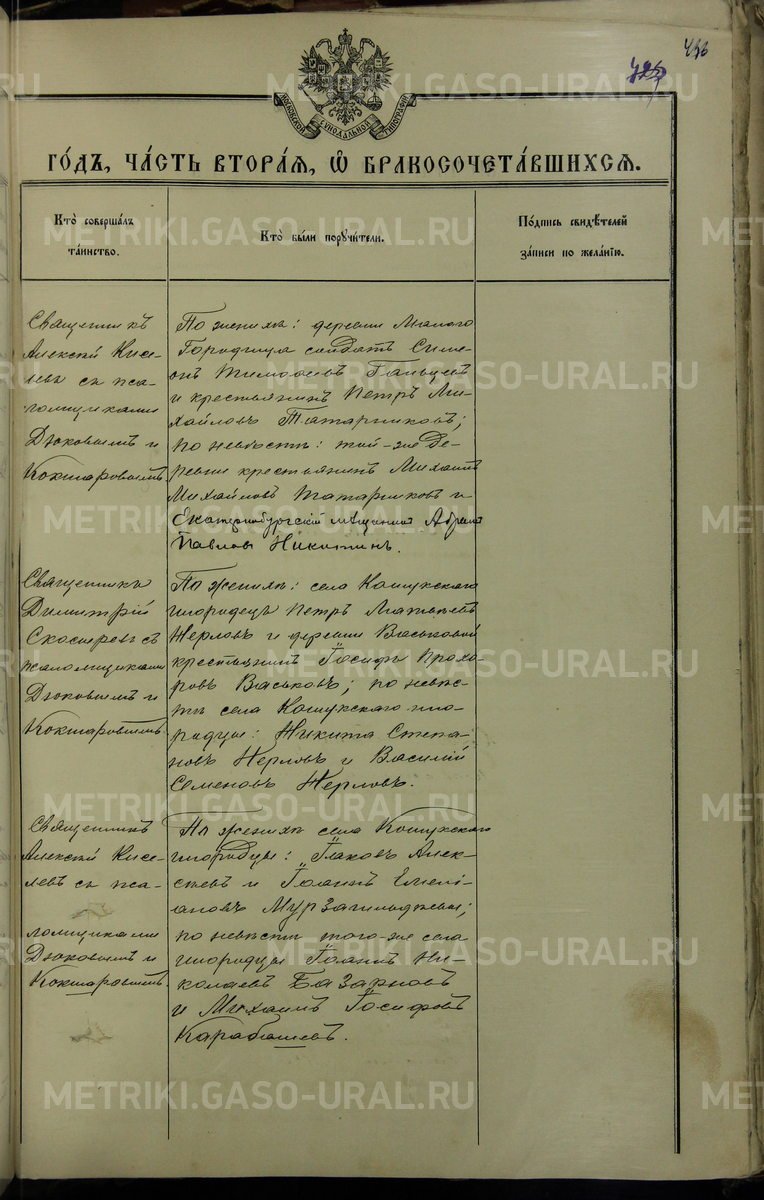 436
МОСКОВСКОЙ СѴНОДАЛЬНОЙ ТИПОГРАФІИ
ГОДЪ, ЧАСТЬ ВТОРАЯ, Ѿ БРАКОСОЧЕТАВШИХСЯ.
Кто совершалъ
таинство.
Кто были поручители.
Подпись свидѣтелей
записи по желанію.
Священникъ
Алексій Кисе-
левъ съ пса-
ломщиками
Дюковымъ и
Кокшаровымъ
По женихѣ: деревни Малаго
Городища солдатъ Симе-
онъ Тимофеевъ
и крестьянинъ Петръ Ми-
хайловъ Татарниковъ;
по невѣстѣ: той-же де-
ревни крестьянинъ Михаилъ
Михайловъ Татарниковъ и
Екатеринбургскій мѣщанинъ
Павловъ Никитинъ.
Священникъ
Димитрій
Скосыревъ съ
псаломщиками
Дюковымъ и
Кокшаровымъ
По женихѣ: села Кошукскаго
инородецъ Петръ Матвѣевъ
Жерловъ и деревни Васьковой
крестьянинъ Іосифъ Прохо-
ровъ Васьковъ; по невѣс-
тѣ села Кошукскаго ино-
родцы: Никита Степа-
новъ Жерловъ и Василій
Семеновъ Жерловъ.
Священникъ
Алексій Кисе-
левъ съ пса-
ломщиками
Дюковымъ и
Кокшаровымъ
По женихѣ села Кошукскаго
инородцы: Іаковъ Алек-
сѣевъ и Іоаннъ Емелі-
ановъ Мурзагильдѣевы;
по невѣстѣ того-же села
инородцы Іоаннъ Ни-
колаевъ Базарновъ
и Михаилъ Іосифовъ
Карабашевъ.
METRIKI.GASO-URAL.RU